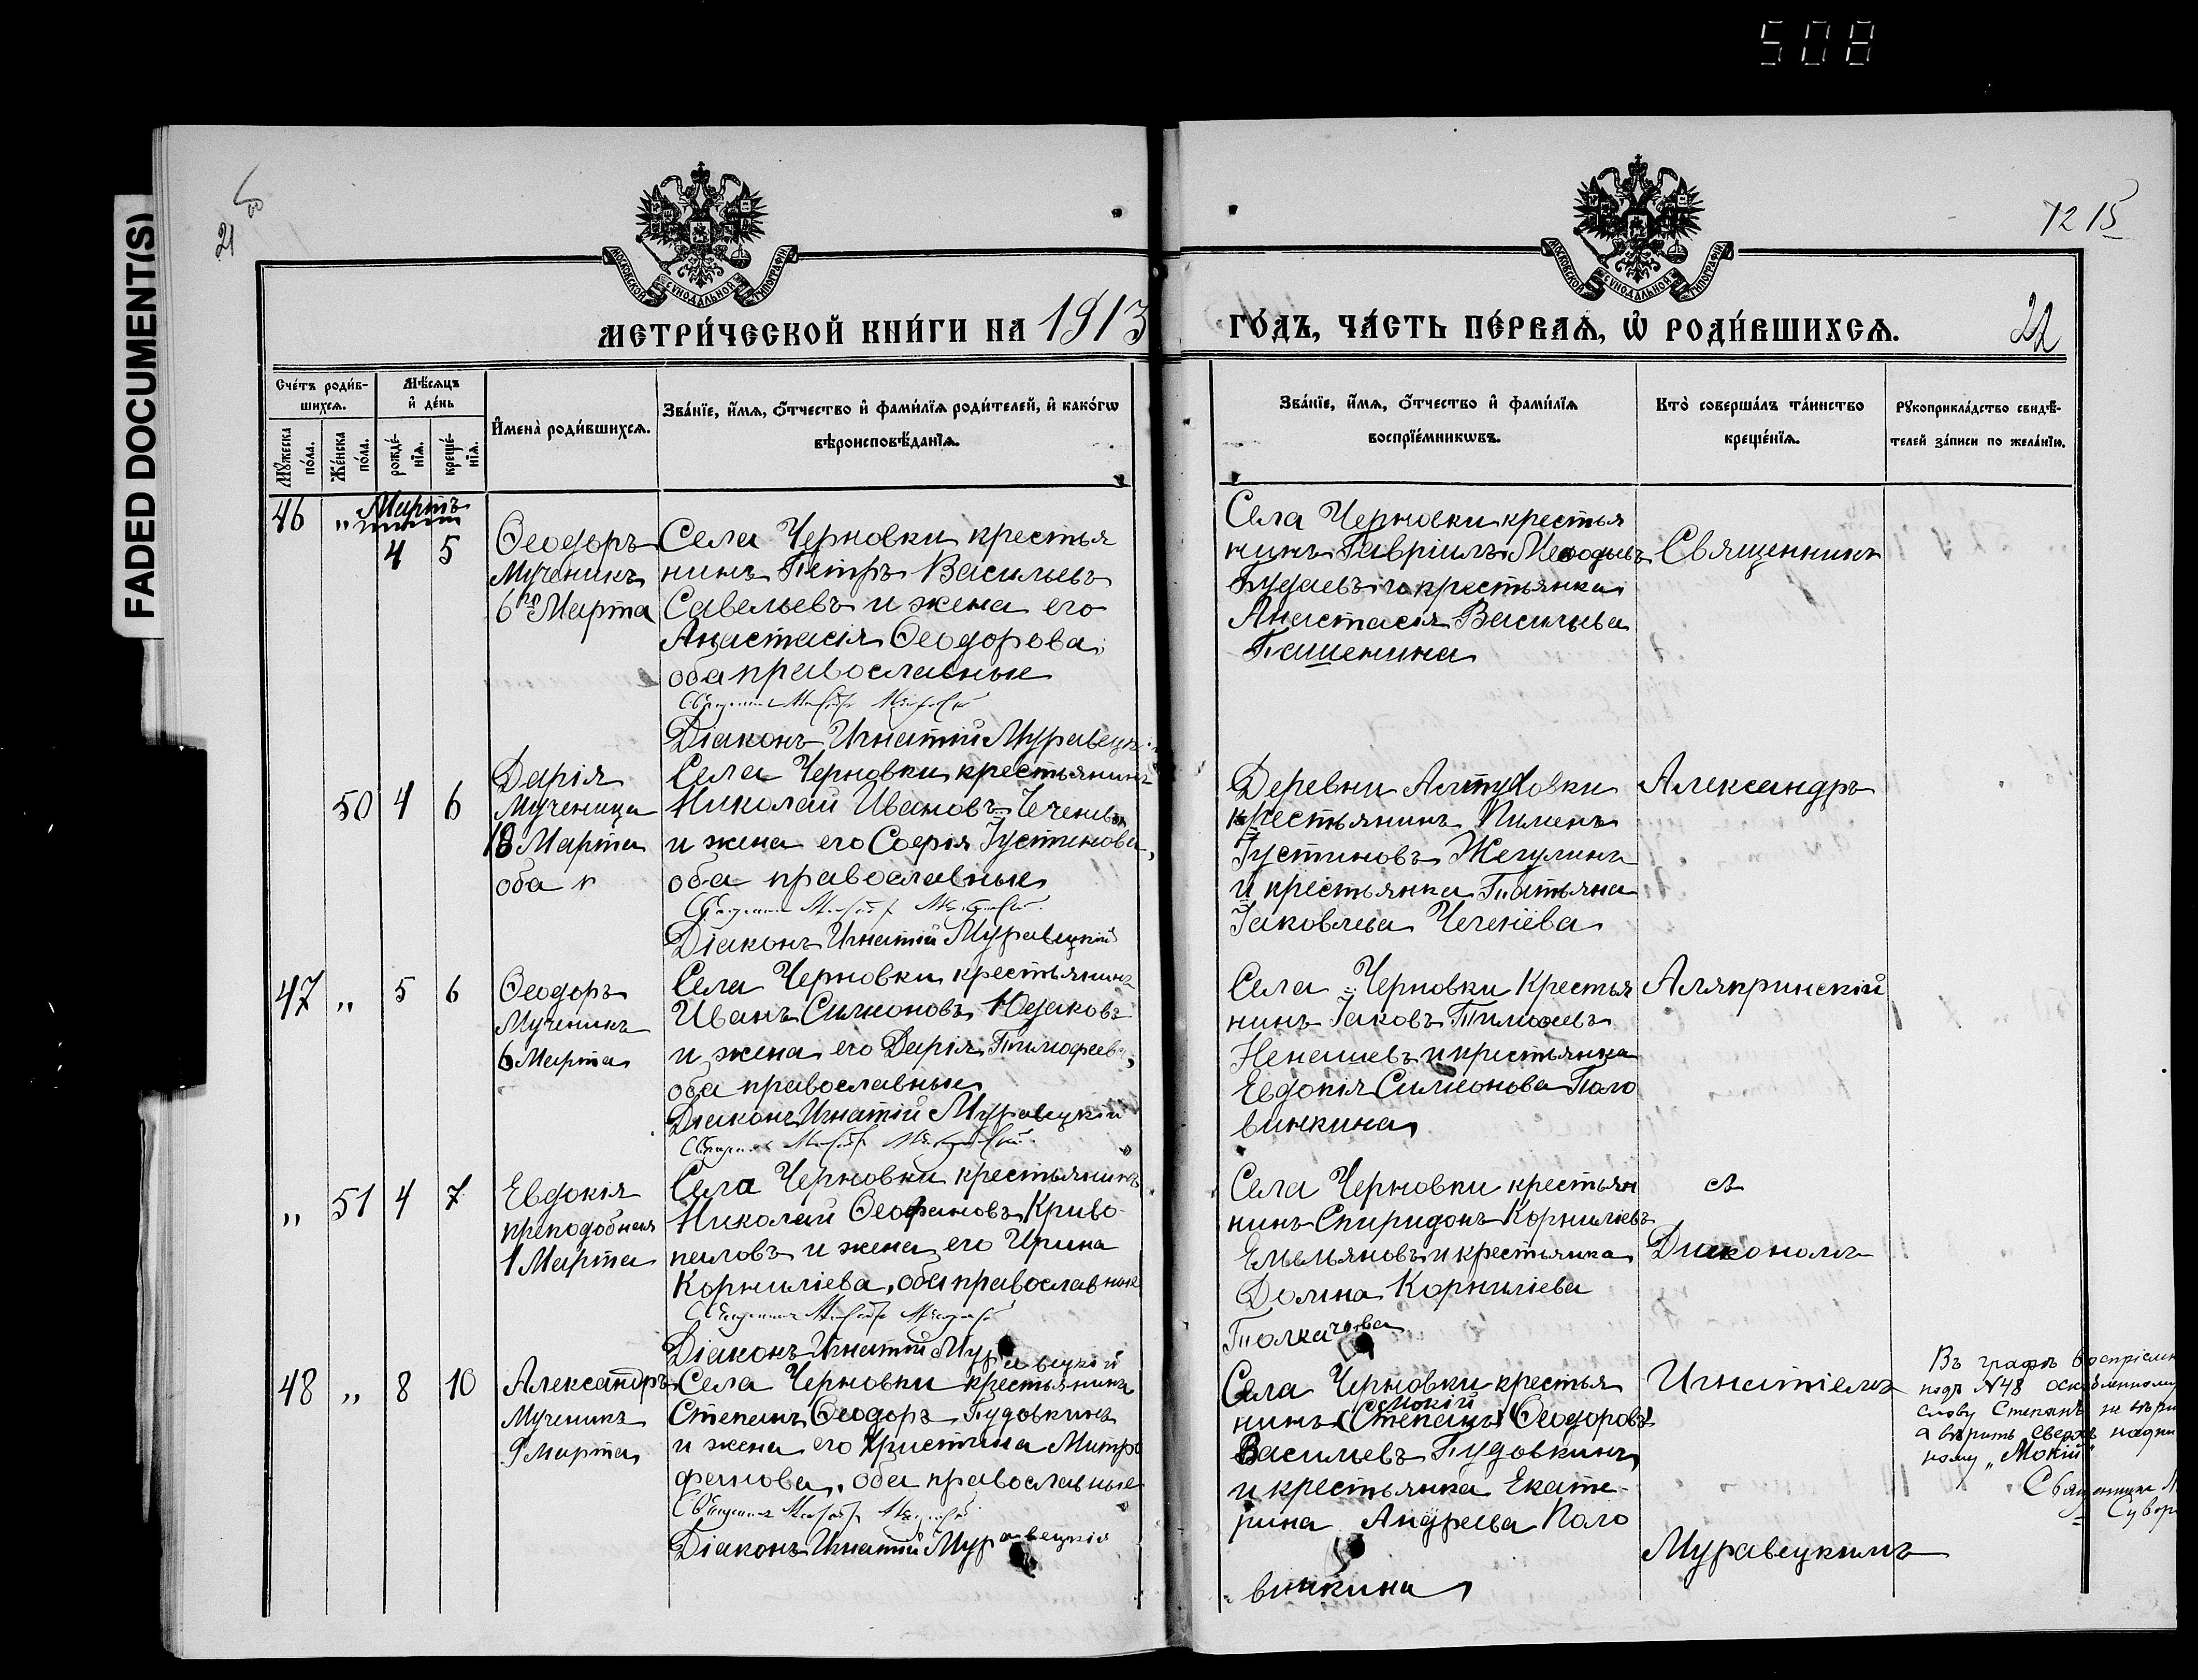 508
FADED DOCUMENT(S)
21
12 15
МОСКОВСКОЙ СѴНОДАЛЬНОЙ ТИПОГРАФІИ
МОСКОВСКОЙ СѴНОДАЛЬНОЙ ТИПОГРАФІИ
МЕТРИ́ЧЕСКОЙ КНИ́ГИ НА 1913
ГО́ДЪ, ЧА́СТЬ ПЕ́РВАѦ, Ѡ҆ РОДИ́ВШИХСѦ.
22
Сче́тъ роди́в-
шихсѧ.
Мѣ́сѧцъ
и҆ де́нь
Мꙋ́жеска
по́ла.
Же́нска
по́ла.
рожде́-
нїѧ.
креще́-
нїѧ.
И҆мена̀ роди́вшихсѧ.
Зва́нїе, и҆́мѧ, ѻ҆́тчество и҆ фами́лїѧ роди́телей, и҆ како́гѡ
вѣроисповѣ́данїѧ.
Зва́нїе, и҆́мѧ, ѻ҆́тчество и҆ фами́лїѧ
воспрїе́мникѡвъ.
Кто̀ соверша́лъ та́инство
креще́нїѧ.
Рꙋкоприкла́дство свидѣ́-
телей за́писи по жела́нїю.
Мартъ
46 „ 4 5
Ѳеодоръ
Мученикъ
6го Марта
Села Черновки крестья
нинъ Петръ Васильевъ
Савельевъ и жена его
Анастасія Ѳеодорова,
оба православные
Діаконъ Игнатій Муравецкі
Села Черновки крестья
нинъ Гавріилъ Меѳодьевъ
Будаевъ и крестьянка
Анастасія Васильева
Пашенина
Священникъ
50 4 6
Дарія
Мученица
18 Марта
оба
Села Черновки крестьянинъ
Николай Ивановъ Чеченевъ
и жена его Софія Іустинова,
оба православные
Діаконъ Игнатій Муравецкій
Деревни Алтуховки
крестьянинъ Пименъ
Іустиновъ Жегулинъ
и крестьянка Татьяна
Іаковлева Чеченева
Александръ
47 „ 5 6
Ѳеодоръ
Мученикъ
6 Марта
Села Черновки крестьянинъ
Иванъ Симеоновъ Юдаковъ
и жена его Дарія Тимофеева,
оба православные
Діаконъ Игнатій Муравецкій
Села Черновки Крестья
нинъ Іаковъ Тимоѳеевъ
Ненашевъ и крестьянка
Евдокія Симеонова Поло
винкина
Аляkринскій
„ 51 4 7
Евдокія
преподобная
1 Марта
Села Черновки крестьянинъ
Николай Ѳеофановъ Криво-
паловъ и жена его Ирина
Корниліева, оба православные
Діаконъ Игнатій Муравецкій
Села Черновки крестьян
нинъ Спиридонъ Корниліевъ
Емельяновъ и крестьянка
Домна Корниліева
Толкачова
съ
Діакономъ
48 „ 8 10
Александръ
Мученикъ
9 марта
Села Черновки крестьянинъ
Степанъ Ѳеодоръ Пудовкинъ
и жена его Христина Митро
фанова, оба православные
Діаконъ Игнатій Муравецкій
Села Черновки крестья
Мокій
нинъ (Степанъ) (Ѳеодоровъ)
Васильевъ Пудовкинъ
и крестьянка Екате-
рина Андреева Поло
винкина
Игнатіемъ
Муравецкимъ
Въ графѣ воспріемн
подъ №48 оскобленному
слову Степанъ не вѣри
а вѣрить сверхъ надпи
ному „Мокій"
Священникъ
Сувор